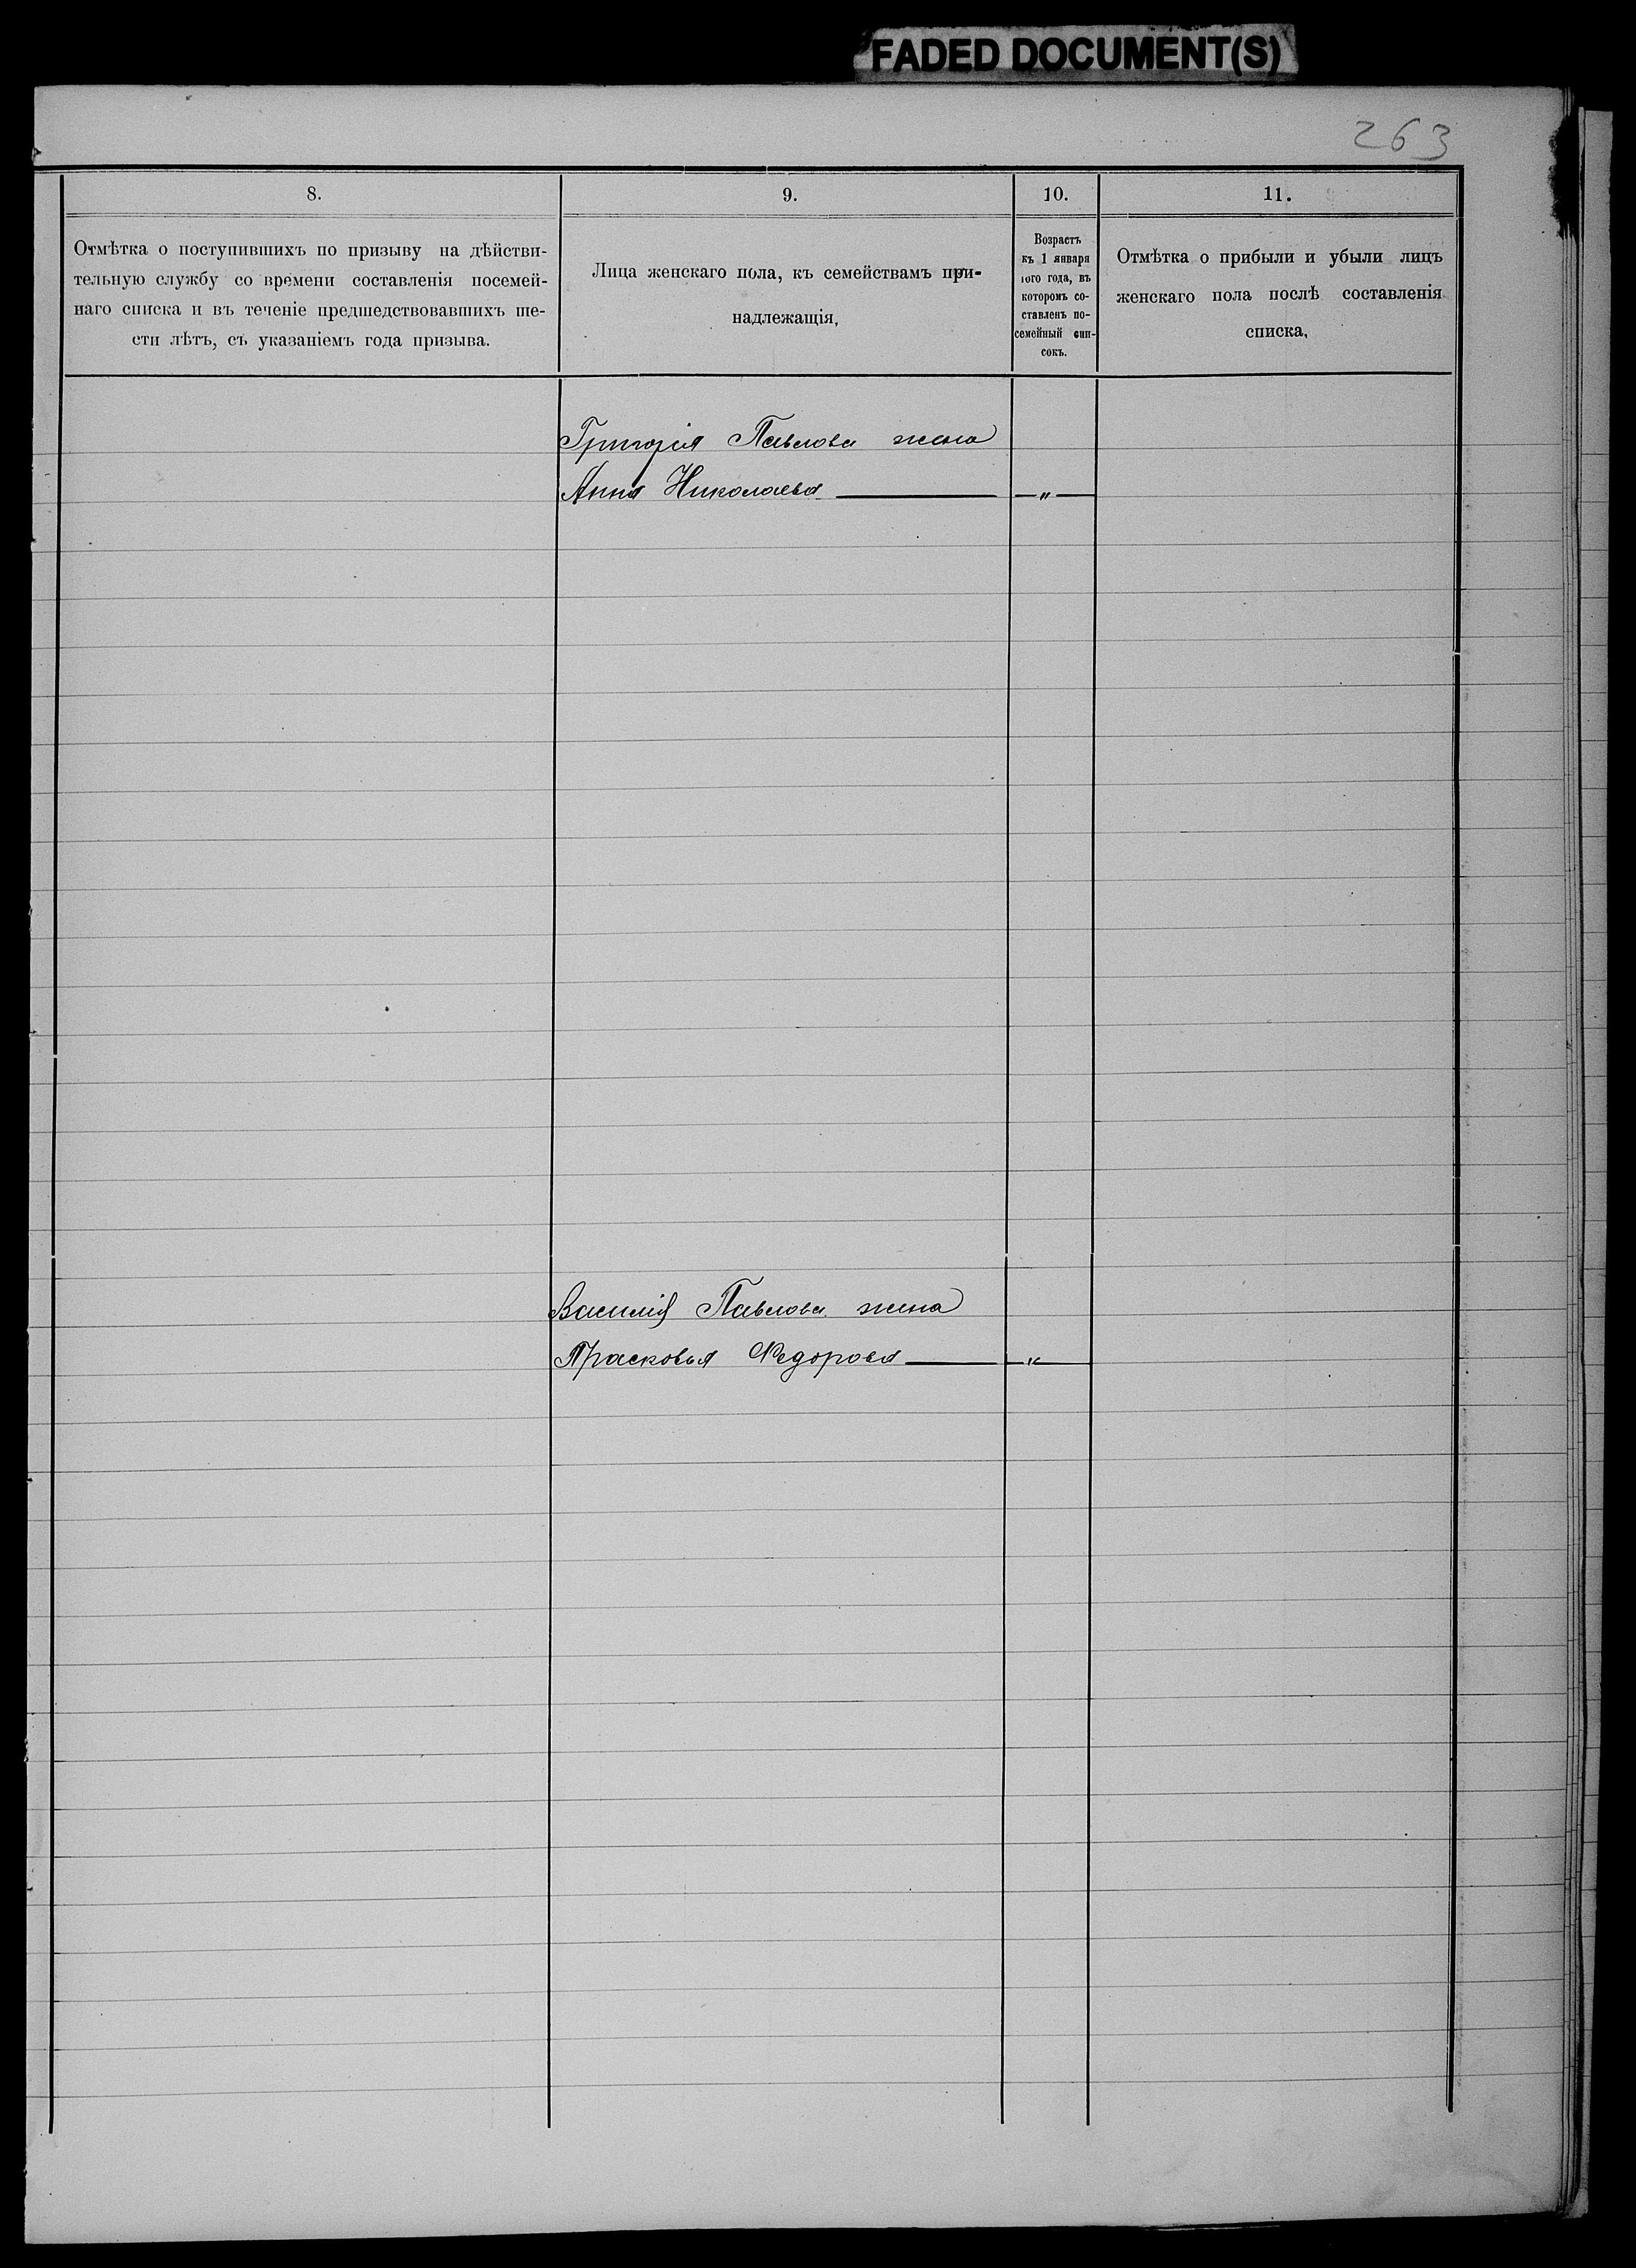 FADED DOCUMENT(S)
263
8.
9.
10.
11.
Отмѣтка о поступившихъ по призыву на дѣйстви-
тельную службу со времени составленія посемей-
наго списка и въ теченіе предшедствовавшихъ ше-
сти лѣтъ, съ указаніемъ года призыва.
Лица женскаго пола, къ семействамъ при-
надлежащія,
Возрастъ
къ 1 января
того года, въ
которомъ со-
ставленъ по-
семейный спи-
сокъ.
Отмѣтка о прибыли и убыли лицъ
женскаго пола послѣ составленія
списка,
Григорія Павлова жена
Анна Николаева — "
Василія Павлова жена
Прасковья Федорова — "